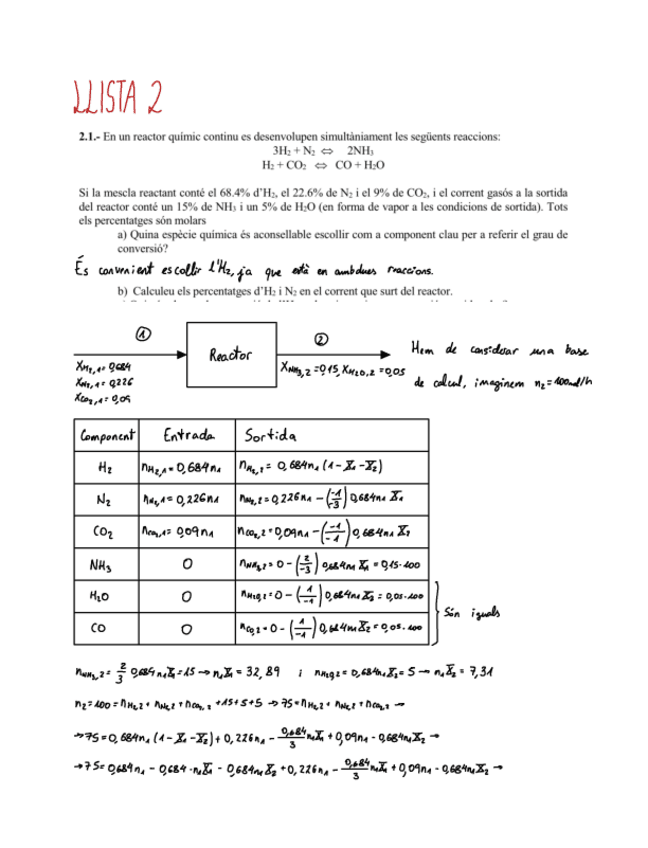 LLISTA 2
2.1.- En un reactor químic continu es desenvolupen simultàniament les següents reaccions:
3H₂ + N₂ ⇔ 2NH₃
H₂ + CO₂ ⇔ CO + H₂O
Si la mescla reactant conté el 68.4% d'H₂, el 22.6% de N₂ i el 9% de CO₂, i el corrent gasós a la sortida
del reactor conté un 15% de NH₃ i un 5% de H₂O (en forma de vapor a les condicions de sortida). Tots
els percentatges són molars
a) Quina espècie química és aconsellable escollir com a component clau per a referir el grau de
conversió?
És convenient escollir l'H₂, ja que està en ambdues reaccions.
b) Calculeu els percentatges d'H₂ i N₂ en el corrent que surt del reactor.
① Reactor ②
X_H₂,1 = 0,684
X_N₂,1 = 0,226
X_CO₂,1 = 0,09
X_NH₃,2 = 0,15, X_H₂O,2 = 0,05
Hem de considerar una base
de calcul, imaginem n₂ = 100 mol/h
Component Entrada Sortida
H₂ n_H₂,1 = 0,684n₁ n_H₂,2 = 0,684n₁ (1 - X₁ - X₂)
N₂ n_N₂,1 = 0,226n₁ n_N₂,2 = 0,226n₁ - (-1/-3) 0,684n₁ X₁
CO₂ n_CO₂,1 = 0,09n₁ n_CO₂,2 = 0,09n₁ - (-1/-1) 0,684n₁ X₂
NH₃ 0 n_NH₃,2 = 0 - (2/-3) 0,684n₁ X₁ = 0,15·100
H₂O 0 n_H₂O,2 = 0 - (1/-1) 0,684n₁ X₂ = 0,05·100
CO 0 n_CO,2 = 0 - (1/-1) 0,684n₁ X₂ = 0,05·100
Són iguals
n_NH₃,2 = 2/3 0,684 n₁X₁ = 15 → n₁X₁ = 32,89 i n_H₂O,2 = 0,684n₁X₂ = 5 → n₁X₂ = 7,31
n₂ = 100 = n_H₂,2 + n_N₂,2 + n_CO₂,2 + 15 + 5 + 5 → 75 = n_H₂,2 + n_N₂,2 + n_CO₂,2 →
→ 75 = 0,684n₁ (1 - X₁ - X₂) + 0,226n₁ - 0,684/3 n₁X₁ + 0,09n₁ - 0,684n₁X₂ →
→ 75 = 0,684n₁ - 0,684·n₁X₁ - 0,684n₁X₂ + 0,226n₁ - 0,684/3 n₁X₁ + 0,09n₁ - 0,684n₁X₂ →